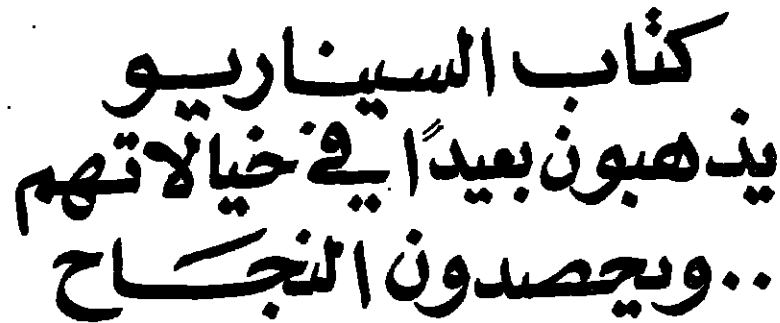 كتاب السيناريو
يذهبون بعيدًا في خيالاتهم
..ويحصدون النجاح